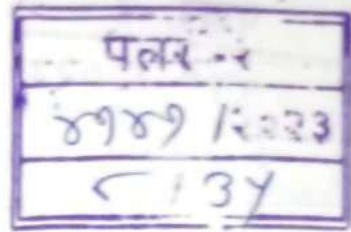 पलर -२
४१४१ /२०२३
८ / ३५